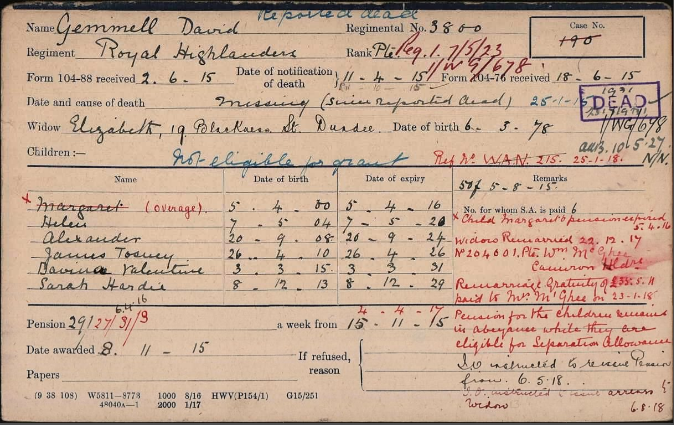 Reported dead
Name Gemmell David Regimental No. 3800 Case No.
Regiment Royal Highlanders Rank Pte Reg. 1. 7/5/23 190
11/WG/678.
Form 104-88 received 2. 6. 15 Date of notification of death 11-4-15 Form 104-76 received 18-6-15
Date and cause of death missing (since reported dead) 25-1-15 DEAD
Widow Elizabeth, 19 St. Dundee. Date of birth 6. 3. 78 11/WG/678
Children:— Not eligible for grant Ref No. W.A.N. 215. 25-1-18. N/N.
Name Date of birth Date of expiry Remarks
50/ 5-8-15
No. for whom S.A. is paid 6
x Margaret (overage). 5. 4. 00 5-4-16
Helen 7-5 04 7-5-20
Alexander 20-9-08 20-9-24
James Tosney 26-4 10 26-4-26
Davina Valentine 3-3 15 3 3 31
Sarah Hardie 8-12. 13 8-12. 29
x Child Margaret's pension expired
5. 4. 16
Widow Remarried 22. 12. 17
No 204001. Pte. Wm McGhee
Cameron Hldrs
Remarriage Gratuity of £35-5-11
paid to Mrs McGhee on 23-1-18.
Pension for the Children remains
in abeyance while they are
eligible for Separation Allowance
6.4.16 4-4-17
Pension 29/27/31/9 a week from 15-11-15
Date awarded 8. 11-15 If refused, reason
Papers
I.O instructed to reissue Pension
from. 6.5.18.
I.O. instructed issue arrears to
Widow 6.8.18
(9 38 108) W5811—8773 1000 8/16 HWV(P154/1) G15/251
48040a—1 2000 1/17